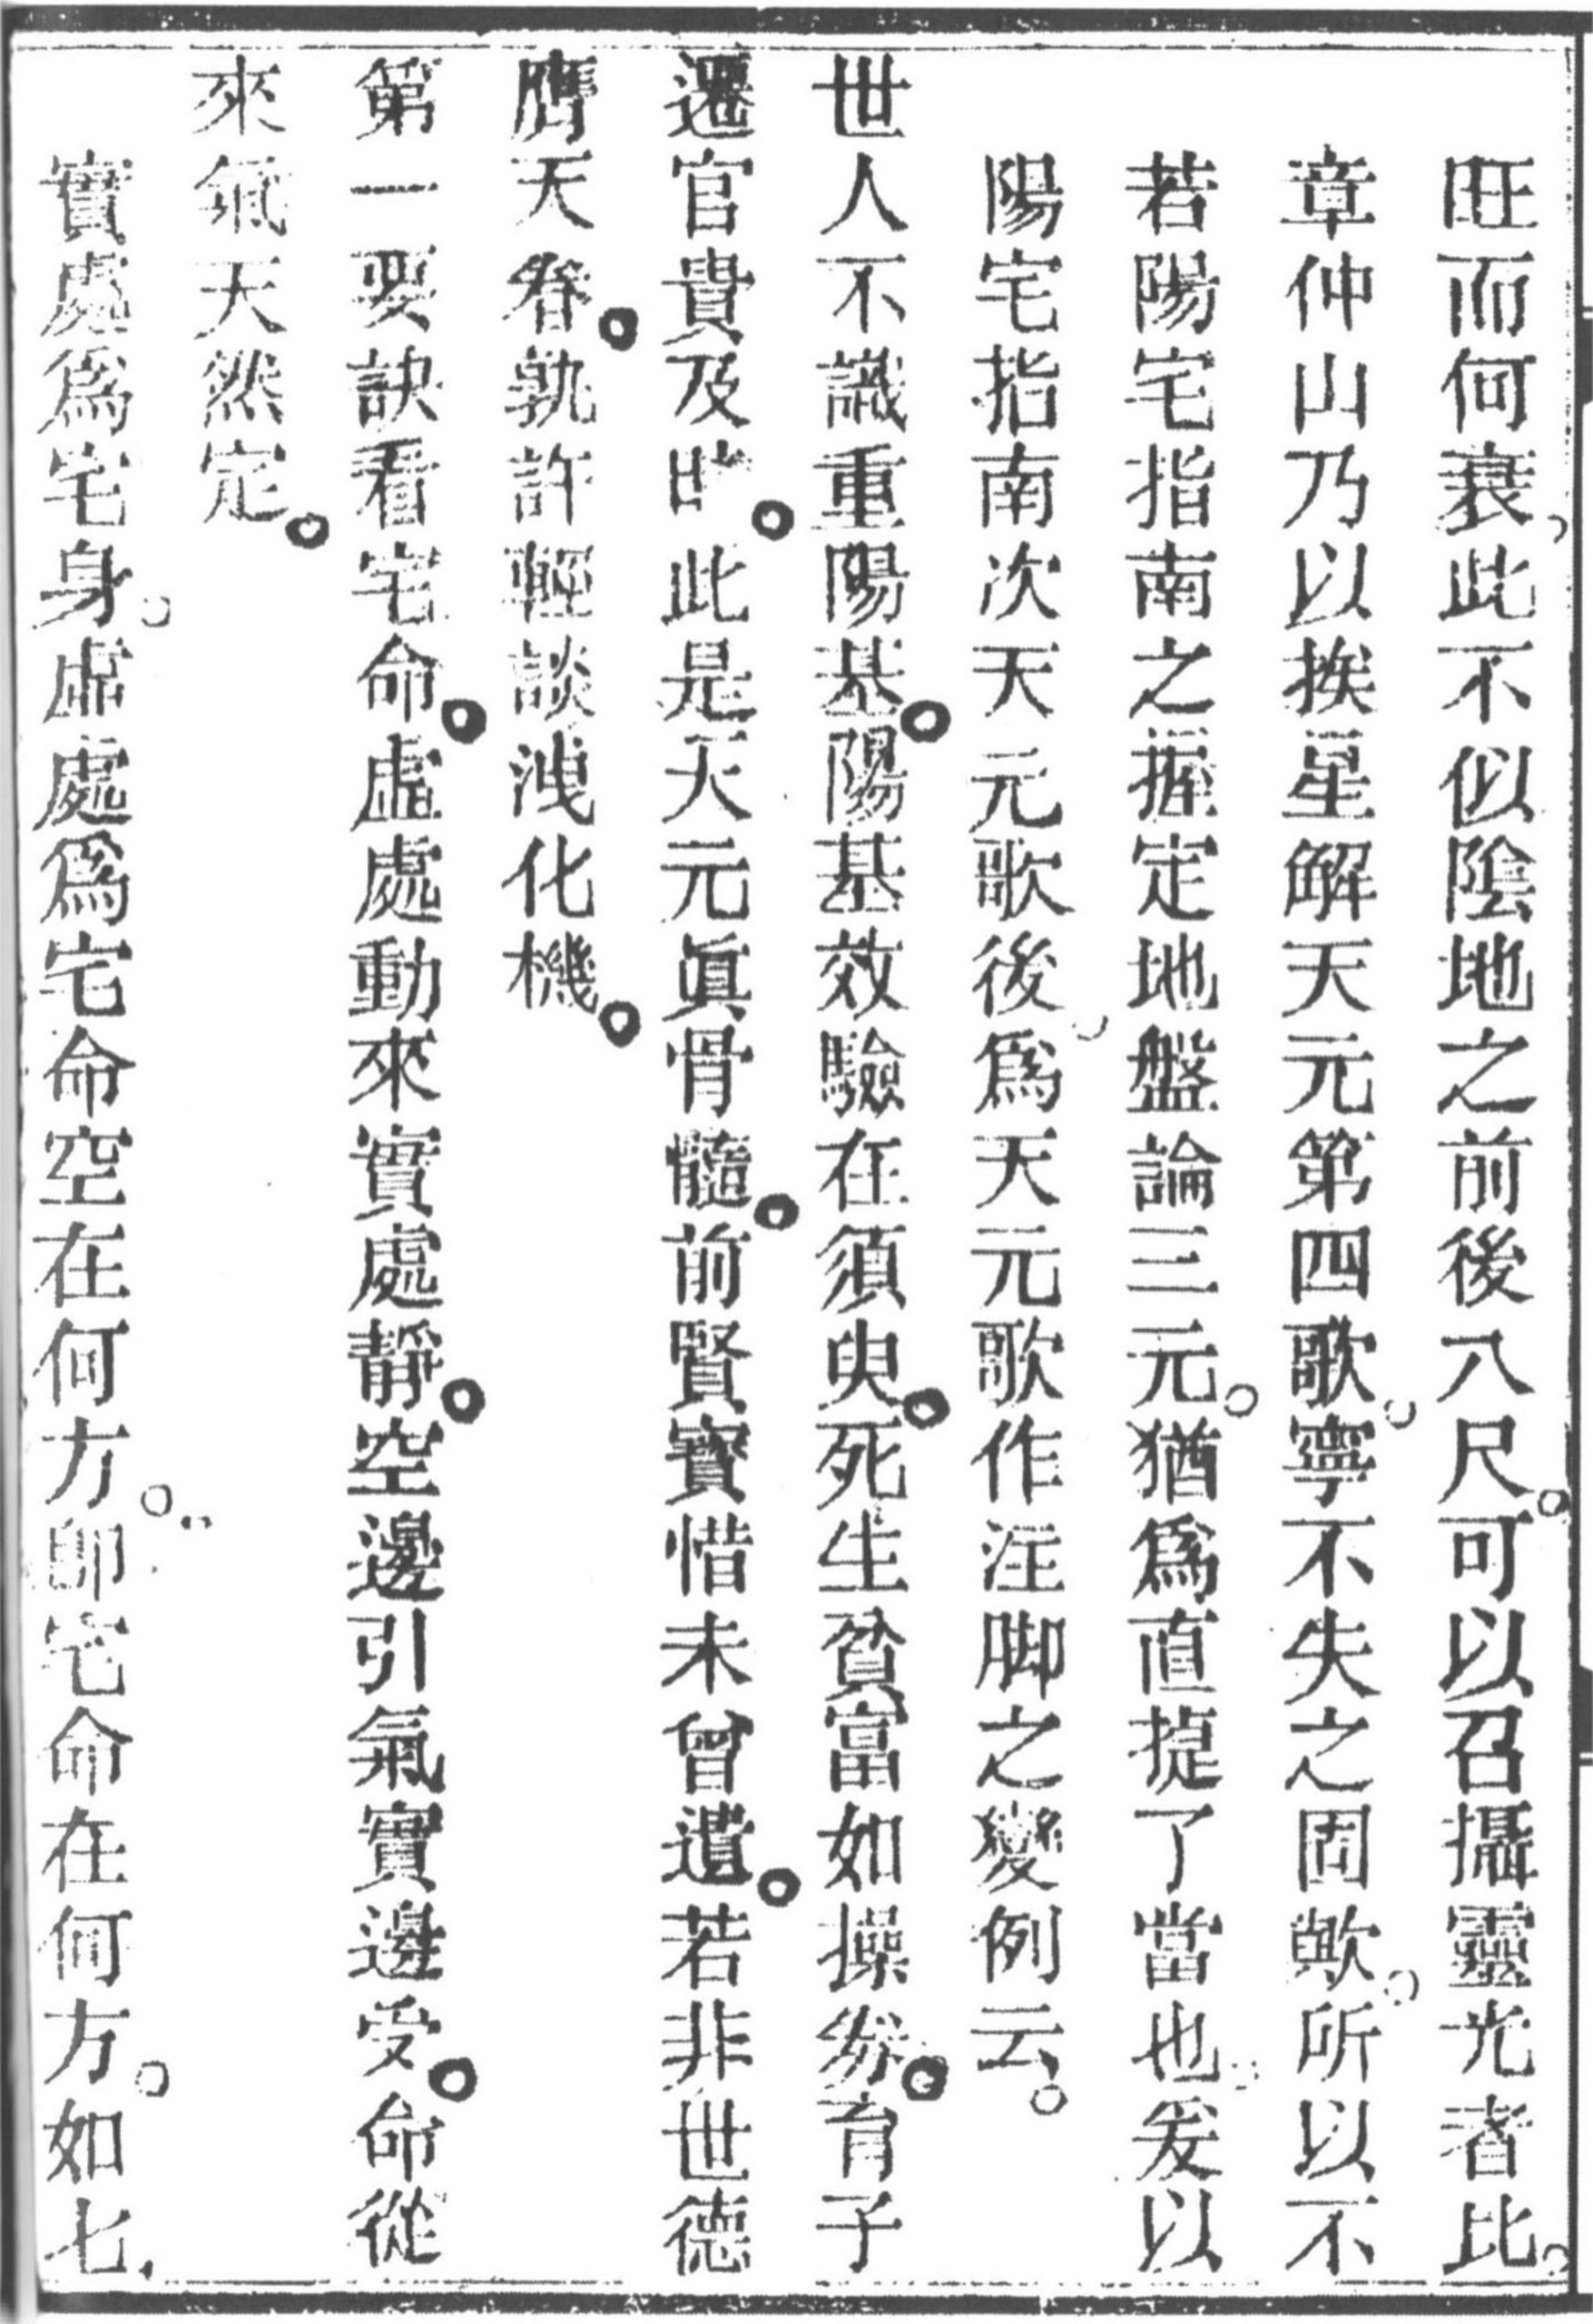 旺而何衰此不似陰地之前後八尺。可以召攝靈光者比。
章仲山乃以挨星解天元第四歌。寧不失之固歟。所以不
若陽宅指南之握定地盤論三元。猶爲直捷了當也。爰以
陽宅指南次天元歌後。爲天元歌作注脚之變例云。
世人不識重陽基。陽基效驗在須臾。死生貧富如操券。育子
遷官貴及時。此是天元眞骨髓。前賢寶惜未曾遺。若非世德
膺天眷。孰許輕談洩化機。
第一要訣看宅命。虛處動來實處靜。空邊引氣實邊受。命從
來氣天然定。
實處爲宅身。虛處爲宅命空在何方。卽宅命在何方。如七、